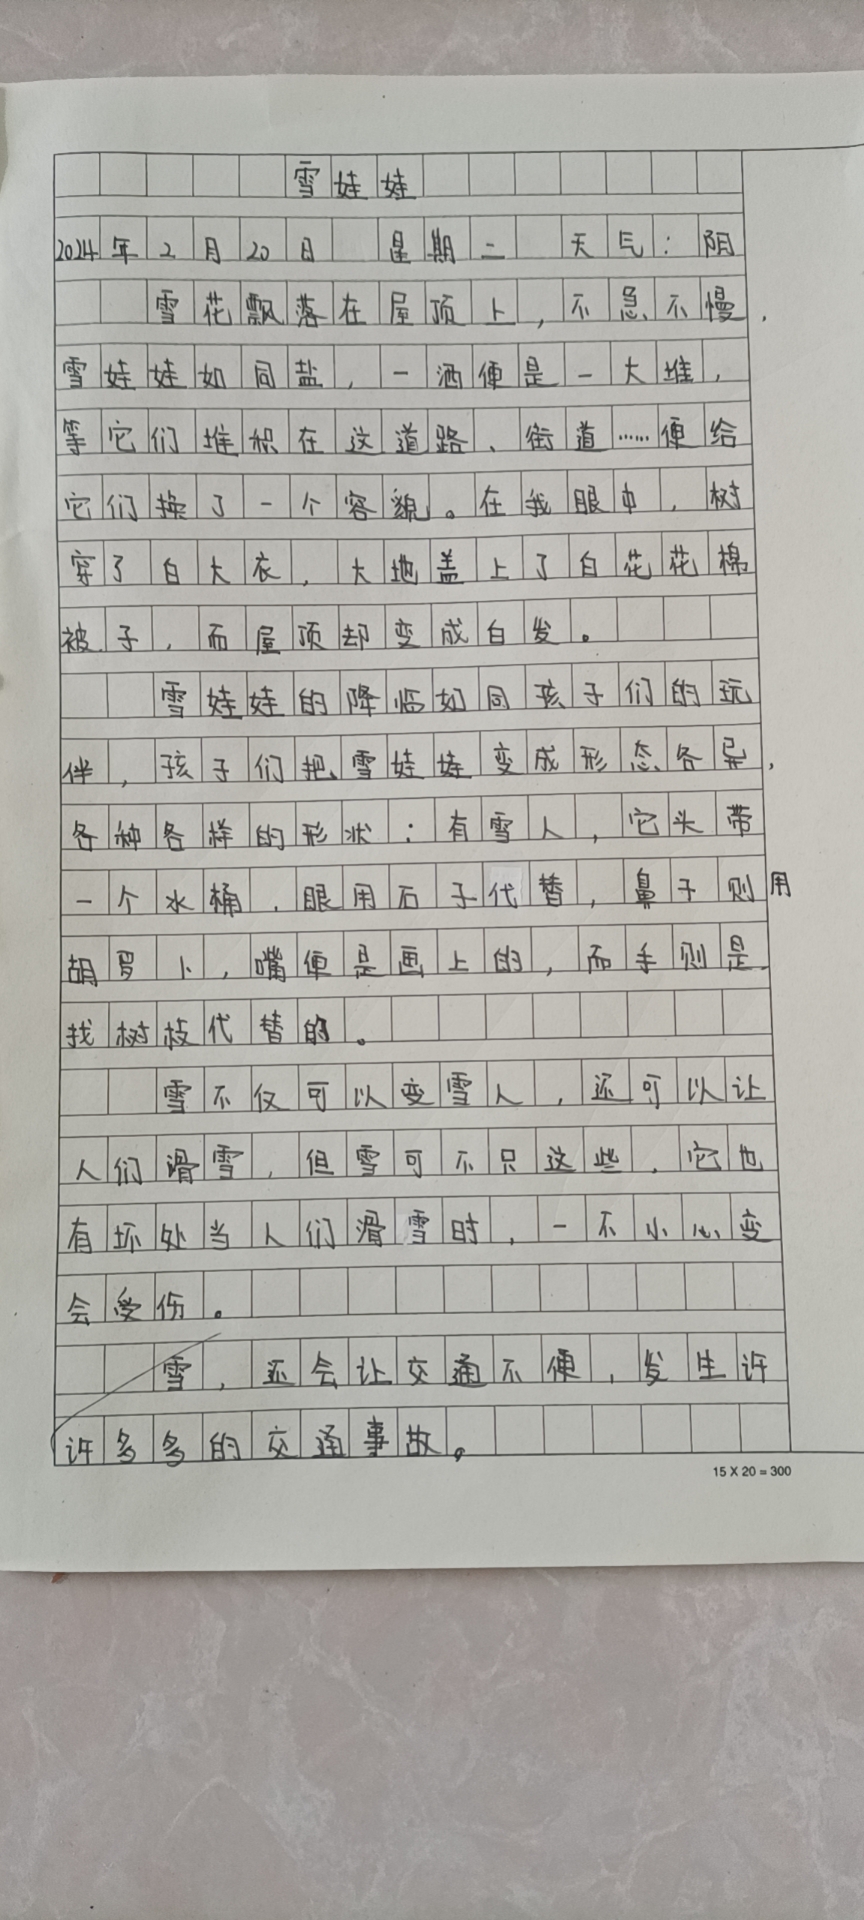 雪娃娃
2024年2月20日 星期二 天气:阴
雪花飘落在屋顶上,不急不慢,
雪娃娃如同盐,一洒便是一大堆,
等它们堆积在这道路、街道……便给
它们换了一个容貌。在我眼中,树
穿了白大衣,大地盖上了白花花棉
被子,而屋顶却变成白发。
雪娃娃的降临如同孩子们的玩
伴,孩子们把雪娃娃变成形态各异,
各种各样的形状:有雪人,它头带
一个水桶,眼用石子代替,鼻子则用
胡罗卜,嘴便是画上的,而手则是
找树枝代替的。
雪不仅可以变雪人,还可以让
人们滑雪,但雪可不只这些,它也
有坏处当人们滑雪时,一不小心变
会受伤。
雪,还会让交通不便,发生许
许多多的交通事故。
15 X 20 = 300